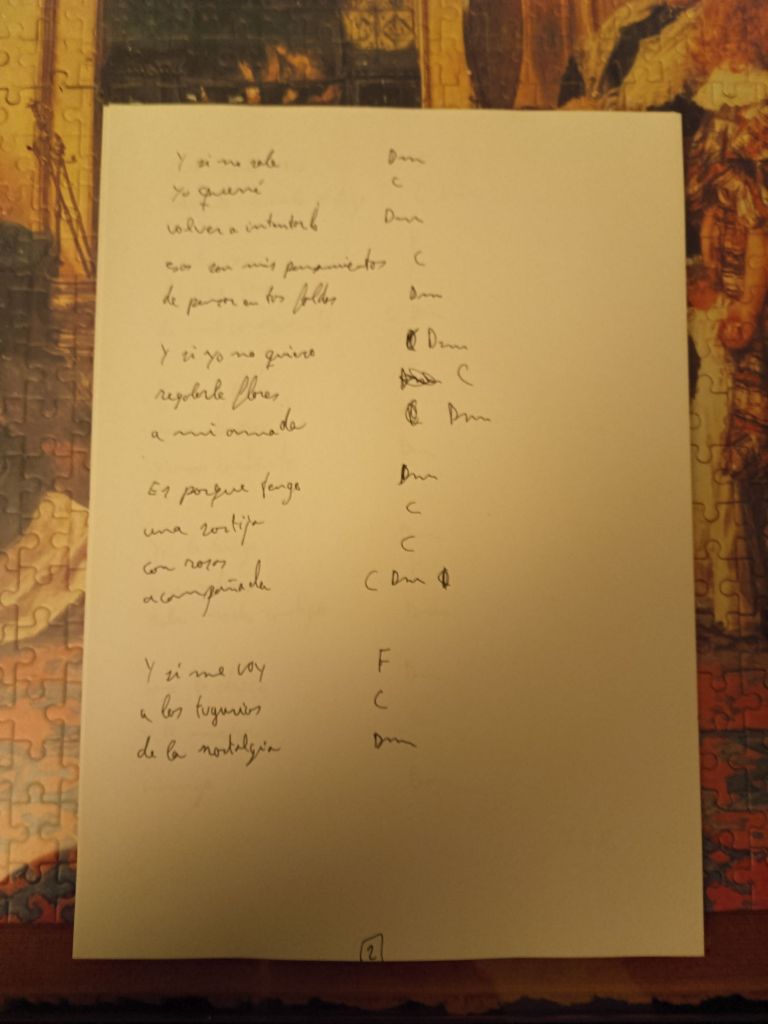 Y si no sale Dm
Yo querré C
volver a intentarlo Dm
esos son mis pensamientos C
de pensar en tus faldas Dm
Y si yo no quiero Dm
regalarle flores C
a mi amada Dm
Es porque tengo Dm
una sortija C
con rosas C
acompañada C Dm
Y si me voy F
a los tugurios C
de la nostalgia Dm
2